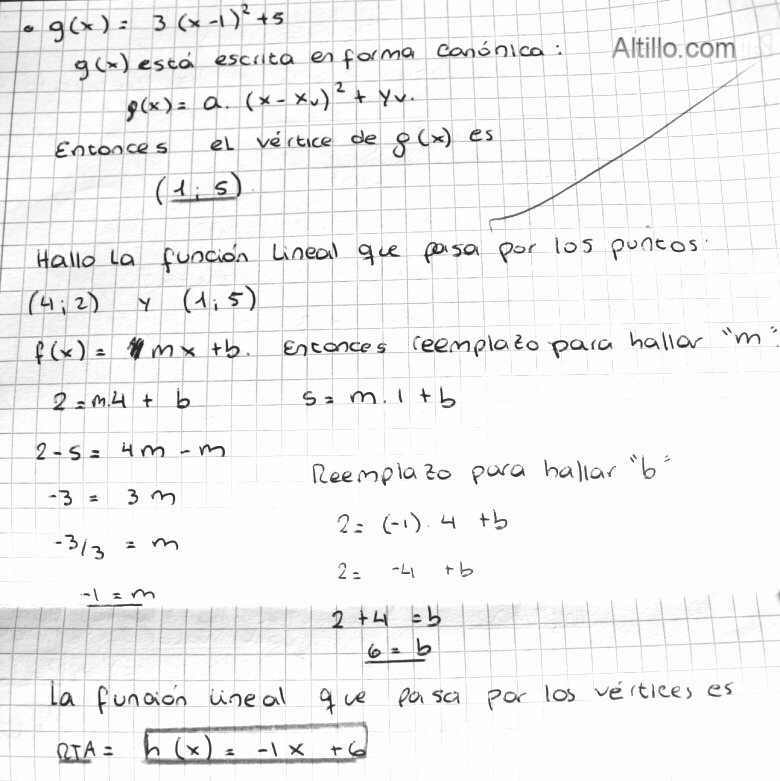 • g(x) = 3 (x-1)² + 5
g(x) está escrita en forma canónica:
Altillo.com
g(x) = a. (x - xv)² + yv.
Entonces el vértice de g(x) es
(1; 5)
Hallo la función lineal que pasa por los puntos:
(4; 2) y (1; 5)
f(x) = mx + b. Entonces reemplazo para hallar "m":
2 = m.4 + b
5 = m.1 + b
2 - 5 = 4m - m
-3 = 3m
-3/3 = m
-1 = m
Reemplazo para hallar "b"
2 = (-1). 4 + b
2 = -4 + b
2 + 4 = b
6 = b
La función lineal que pasa por los vértices es
RTA = h(x) = -1x + 6